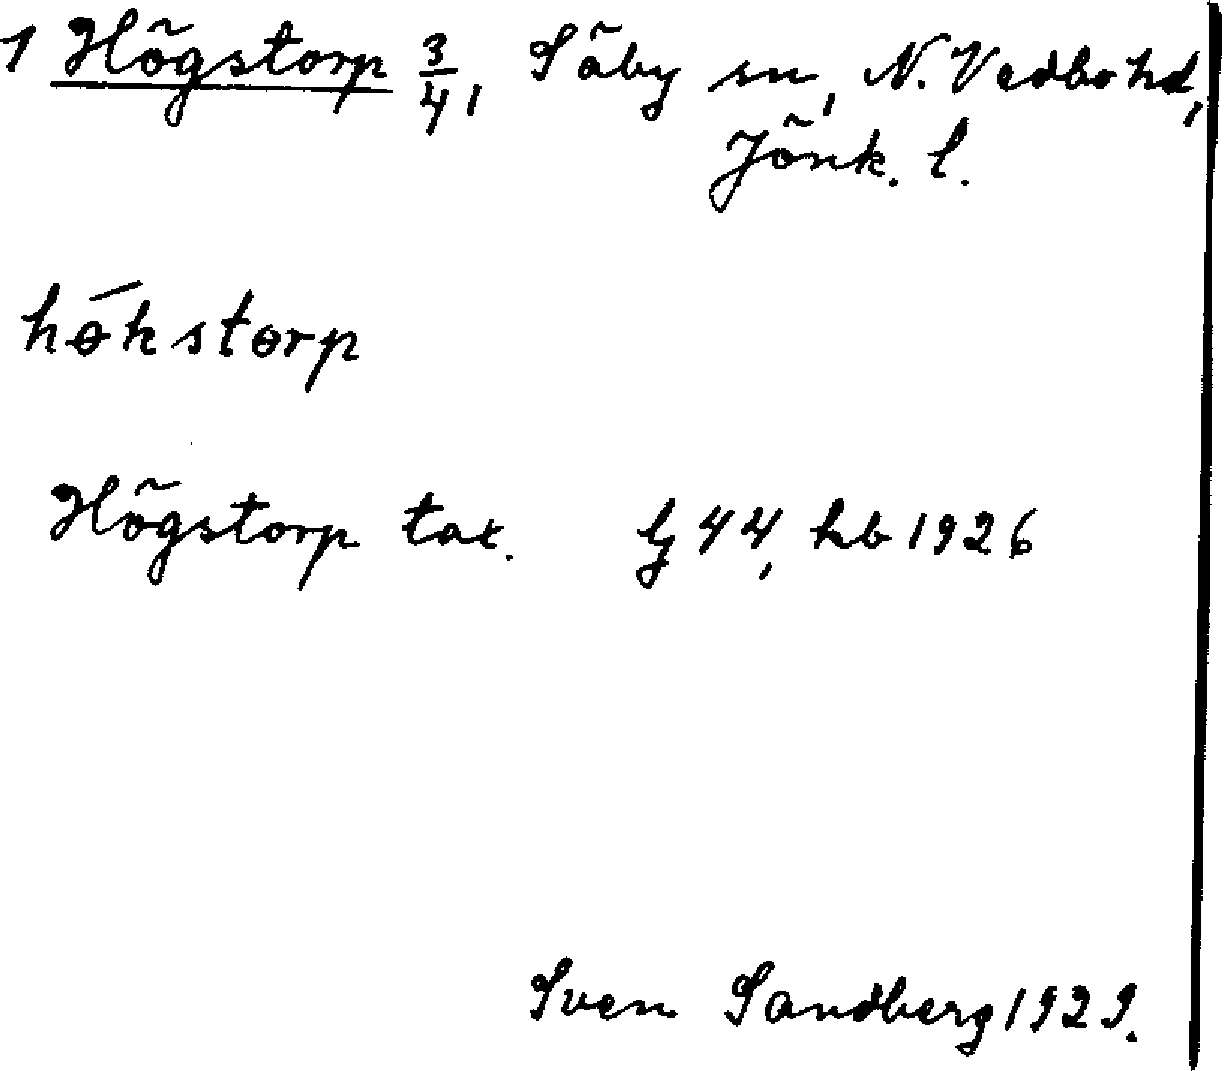 1 Högstorp 3/4, Säby sn, N. Vedbo hd,
Jönk. l.
hö́kstorp
Högstorp tax. lj 44, hb 1926
Sven Sandberg 1929.